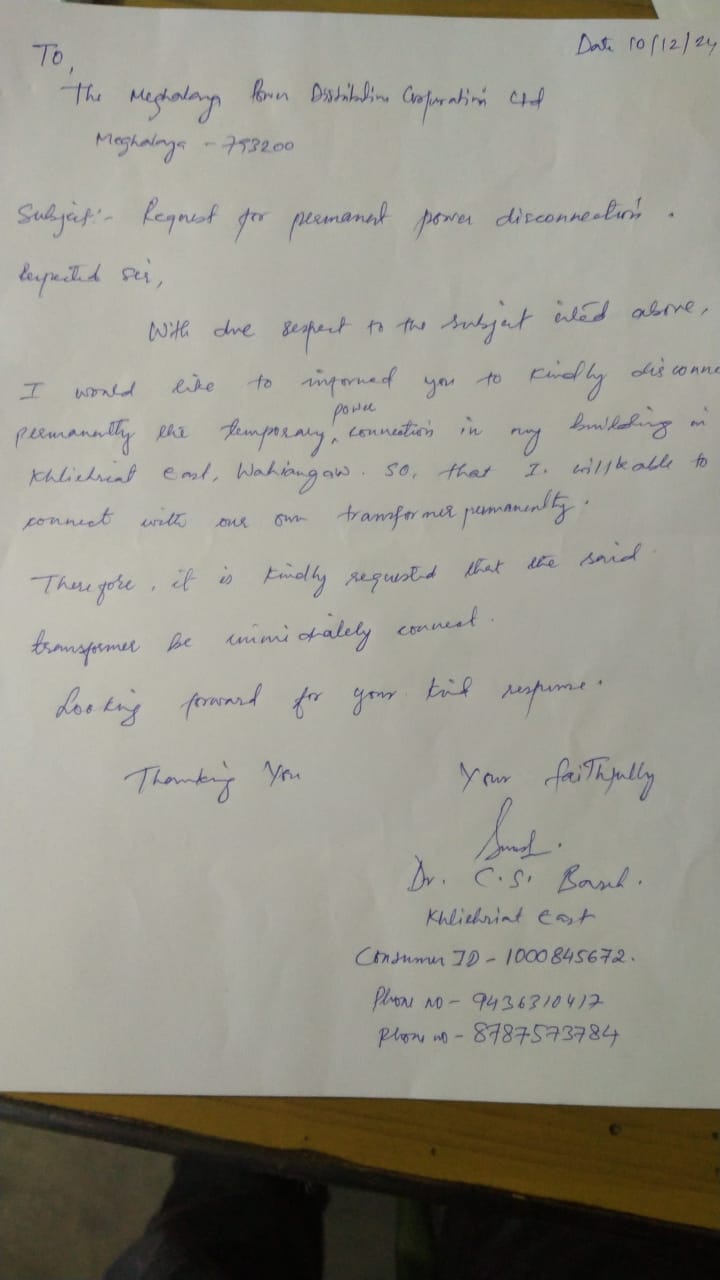 Date 10/12/24
To,
The Meghalaya Power Distribution Corporation Ltd
Meghalaya - 793200
Subject:- Request for permanent power disconnection.
Respected Sir,
With due respect to the subject cited above,
I would like to informed you to kindly disconne
permanently the temporary, power connection in my building in
Khliehriat East, Wahiangaw. So, that I. will be able to
connect with our own transformer permanently.
Therefore, it is kindly requested that the said
transformer be immidiately connect.
Looking forward for your kind response.
Thanking You
Your faithfully
Dr. C.S.
Khliehriat East
Consumer ID - 1000845672.
Phone no - 9436310417
Phone no - 8787573784